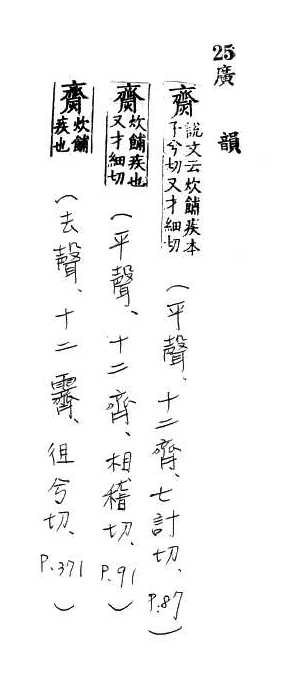 25 廣韻
齌 說文云炊餔疾本
子兮切又才細切
（平聲、十二齊、七計切、P.87）
齌 炊餔疾也
又才細切
（平聲、十二齊、相稽切、P.91）
齌 炊餔
疾也
（去聲、十二霽、徂兮切、P.371）